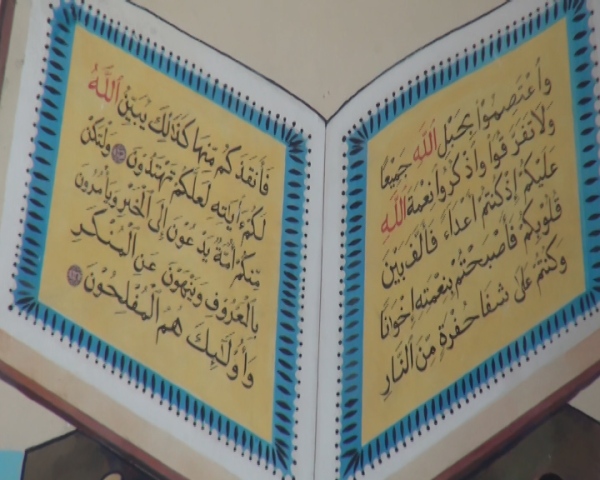 وَاعْتَصِمُوا بِحَبْلِ اللَّهِ جَمِيعًا
وَلَا تَفَرَّقُوا وَاذْكُرُوا نِعْمَةَ اللَّهِ
عَلَيْكُمْ إِذْ كُنْتُمْ أَعْدَاءً فَأَلَّفَ بَيْنَ
قُلُوبِكُمْ فَأَصْبَحْتُمْ بِنِعْمَتِهِ إِخْوَانًا
وَكُنْتُمْ عَلَى شَفَا حُفْرَةٍ مِنَ النَّارِ
فَأَنْقَذَكُمْ مِنْهَا كَذَٰلِكَ يُبَيِّنُ اللَّهُ
لَكُمْ آيَتِهِ لَعَلَّكُمْ تَهْتَدُونَ ۝١٠٣ وَلْتَكُنْ
مِنْكُمْ أُمَّةٌ يَدْعُونَ إِلَى الْخَيْرِ وَيَأْمُرُونَ
بِالْمَعْرُوفِ وَيَنْهَوْنَ عَنِ الْمُنْكَرِ
وَأُولَٰئِكَ هُمُ الْمُفْلِحُونَ ۝١٠٤